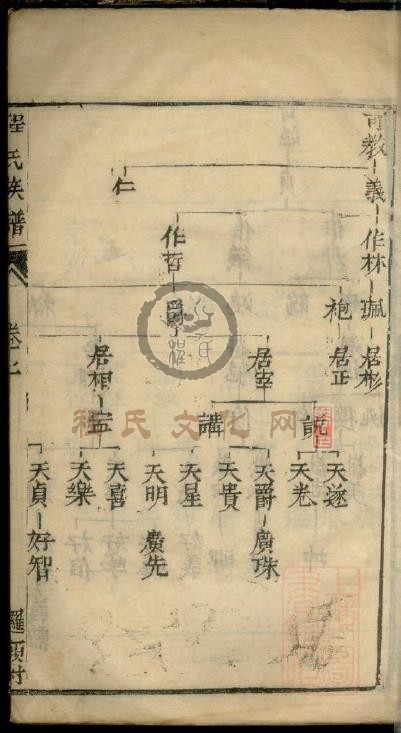 可教 義 作林 珮 居彬
袍 居正
仁
作哲 爵
居宰
居相
講
天遂
天卷
天爵 廣珠
天貴
天星
天明 廣先
天喜
天樂
天貞 好智
程氏族譜
卷七
羅頭村
程氏文化网